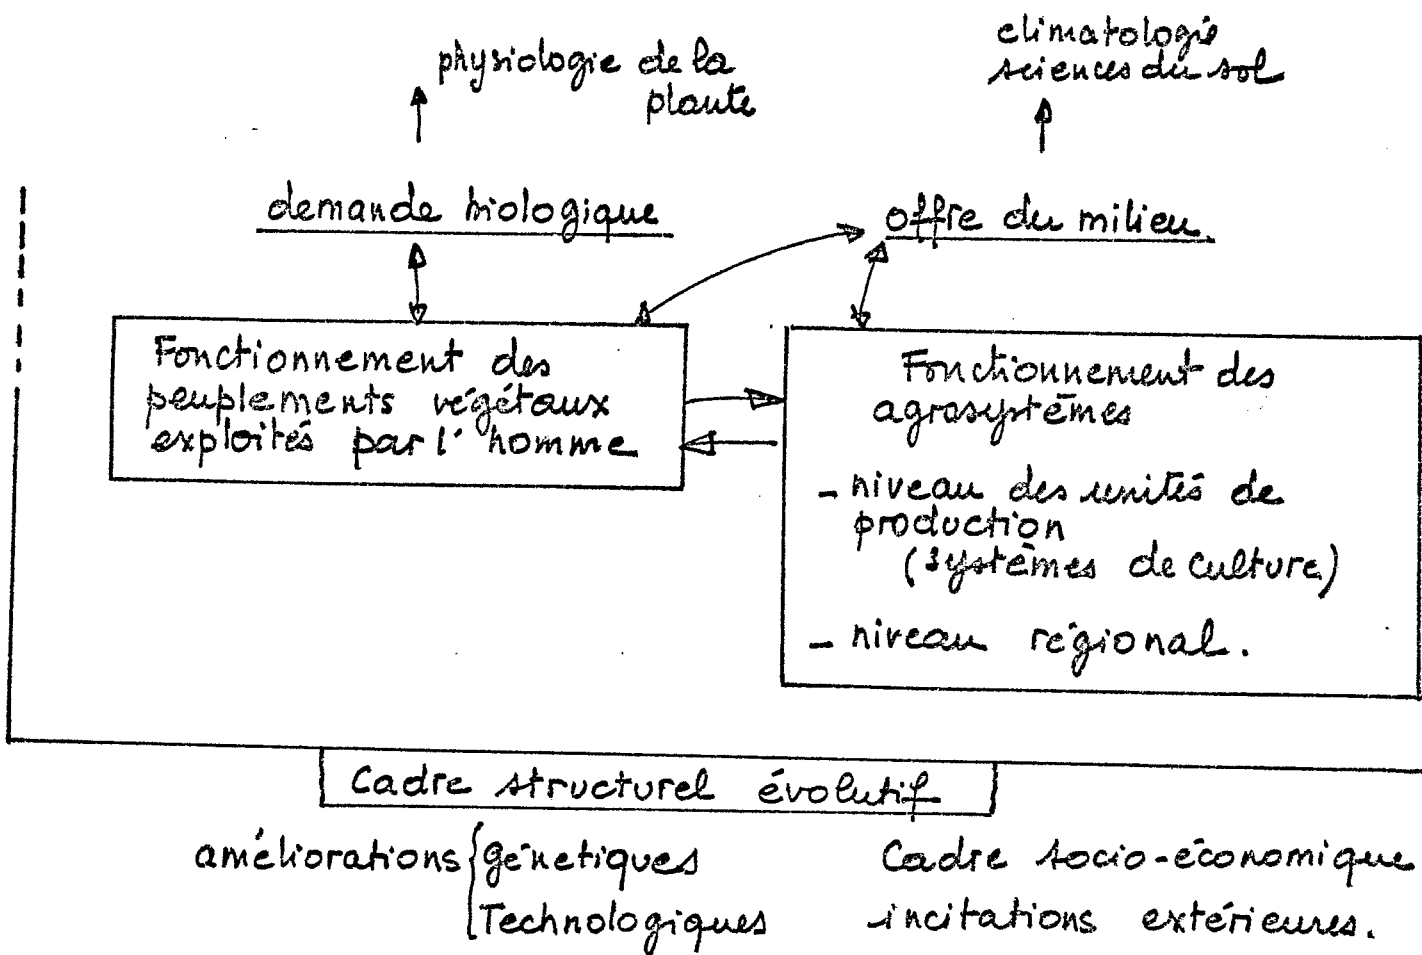 physiologie de la
plante
climatologie
sciences du sol
demande biologique
offre du milieu.
Fonctionnement des
peuplements végétaux
exploités par l'homme
Fonctionnement des
agrosystèmes
- niveau des unités de
production
(systèmes de culture)
- niveau régional.
Cadre structurel évolutif
améliorations { génétiques
Technologiques
Cadre socio-économique
incitations extérieures.